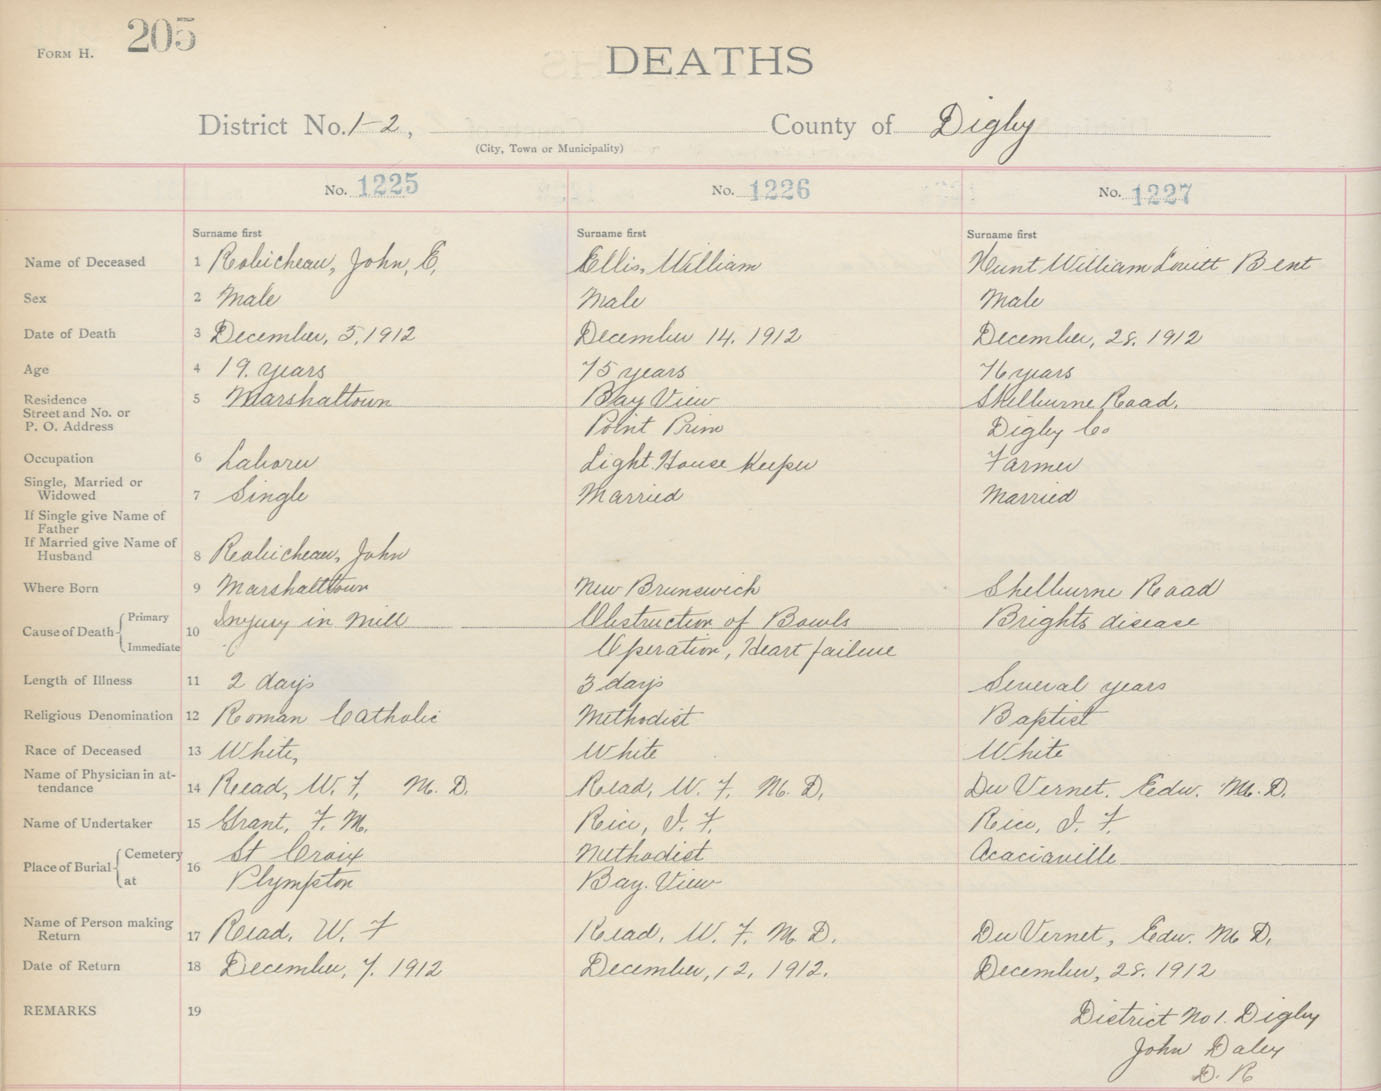 FORM H. 205
DEATHS
District No. 1-2, County of Digby
(City, Town or Municipality)
No. 1225 No. 1226 No. 1227
Surname first Surname first Surname first
Name of Deceased 1 Robicheau, John, E. Ellis, William Hunt William Lovitt Bent
Sex 2 Male Male Male
Date of Death 3 December, 5, 1912 December 14, 1912 December, 28, 1912
Age 4 19 years 75 years 76 years
Residence 5 Marshaltown Bay View Shelburne Road,
Street and No. or
P. O. Address Point Prim Digby Co
Occupation 6 Laborer Light House Keeper Farmer
Single, Married or
Widowed 7 Single Married Married
If Single give Name of
Father
If Married give Name of
Husband 8 Robicheau, John
Where Born 9 Marshalltown New Brunswick Shelburne Road
Cause of Death Primary 10 Injury in Mill Obstruction of Bowls Brights disease
Immediate Operation, Heart failure
Length of Illness 11 2 days 3 days Several years
Religious Denomination 12 Roman Catholic Methodist Baptist
Race of Deceased 13 White, White White
Name of Physician in at-
tendance 14 Read, W. F. M. D. Read, W. F. M. D. Du Vernet, Edw. M. D.
Name of Undertaker 15 Grant, F. M. Rice, I. F. Rice, I. F.
Place of Burial Cemetery 16 St Croix Methodist Acaciaville
at Plympton Bay View
Name of Person making
Return 17 Read, W. F Read, W. F. M. D. Du Vernet, Edw. M D.
Date of Return 18 December, 7, 1912 December, 12, 1912. December, 28, 1912
REMARKS 19 District No 1. Digby
John Daley
D. R